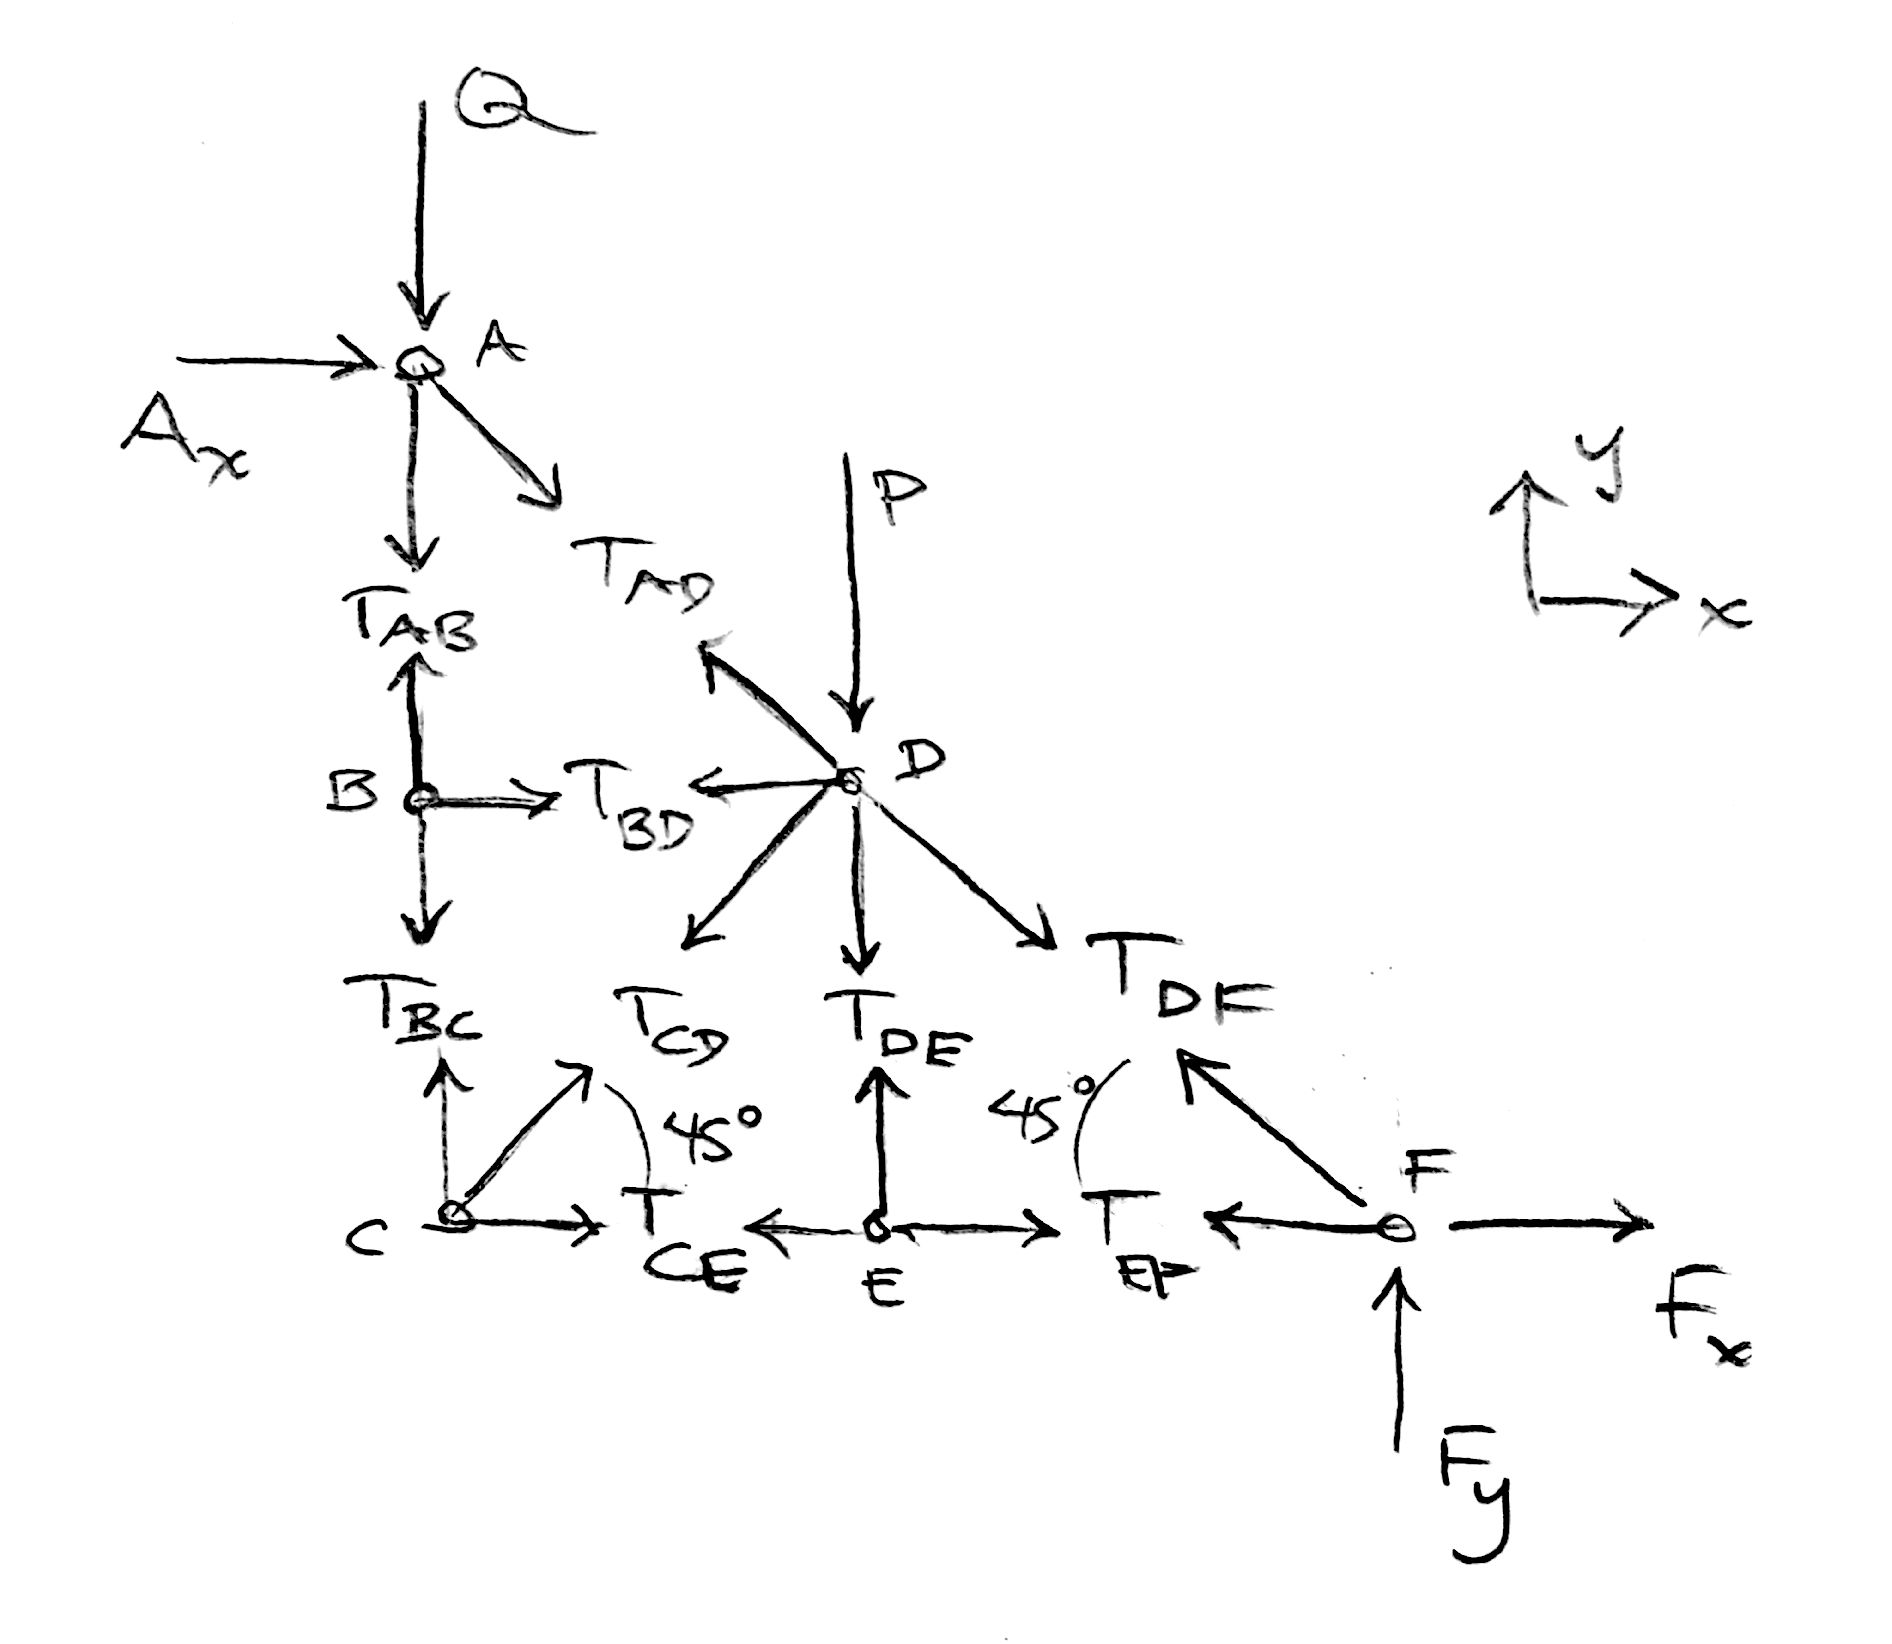 Q
A
A_x
T_AD
T_AB
P
y
x
D
B
T_BD
T_BC
T_CD
T_DE
T_DF
45°
45°
C
T_CE
E
T_EF
F
F_x
F_y